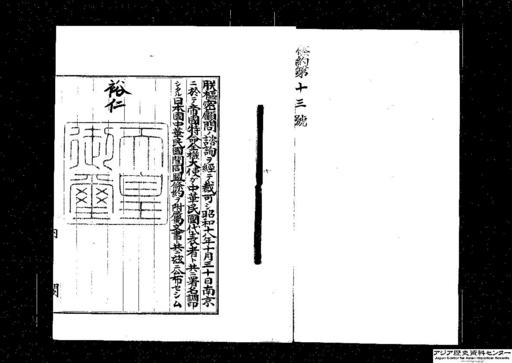 條約第十三號
朕樞密顧問ノ諮詢ヲ經テ裁可シ昭和十八年十月三十日南京
ニ於テ帝國特命全權大使ガ中華民國代表者ト共ニ署名調印
シタル日本國中華民國間同盟條約ヲ附屬文書ト共ニ茲ニ公布セシム
裕仁
天皇
御璽
内閣
アジア歴史資料センター
Japan Center for Asian Historical Records